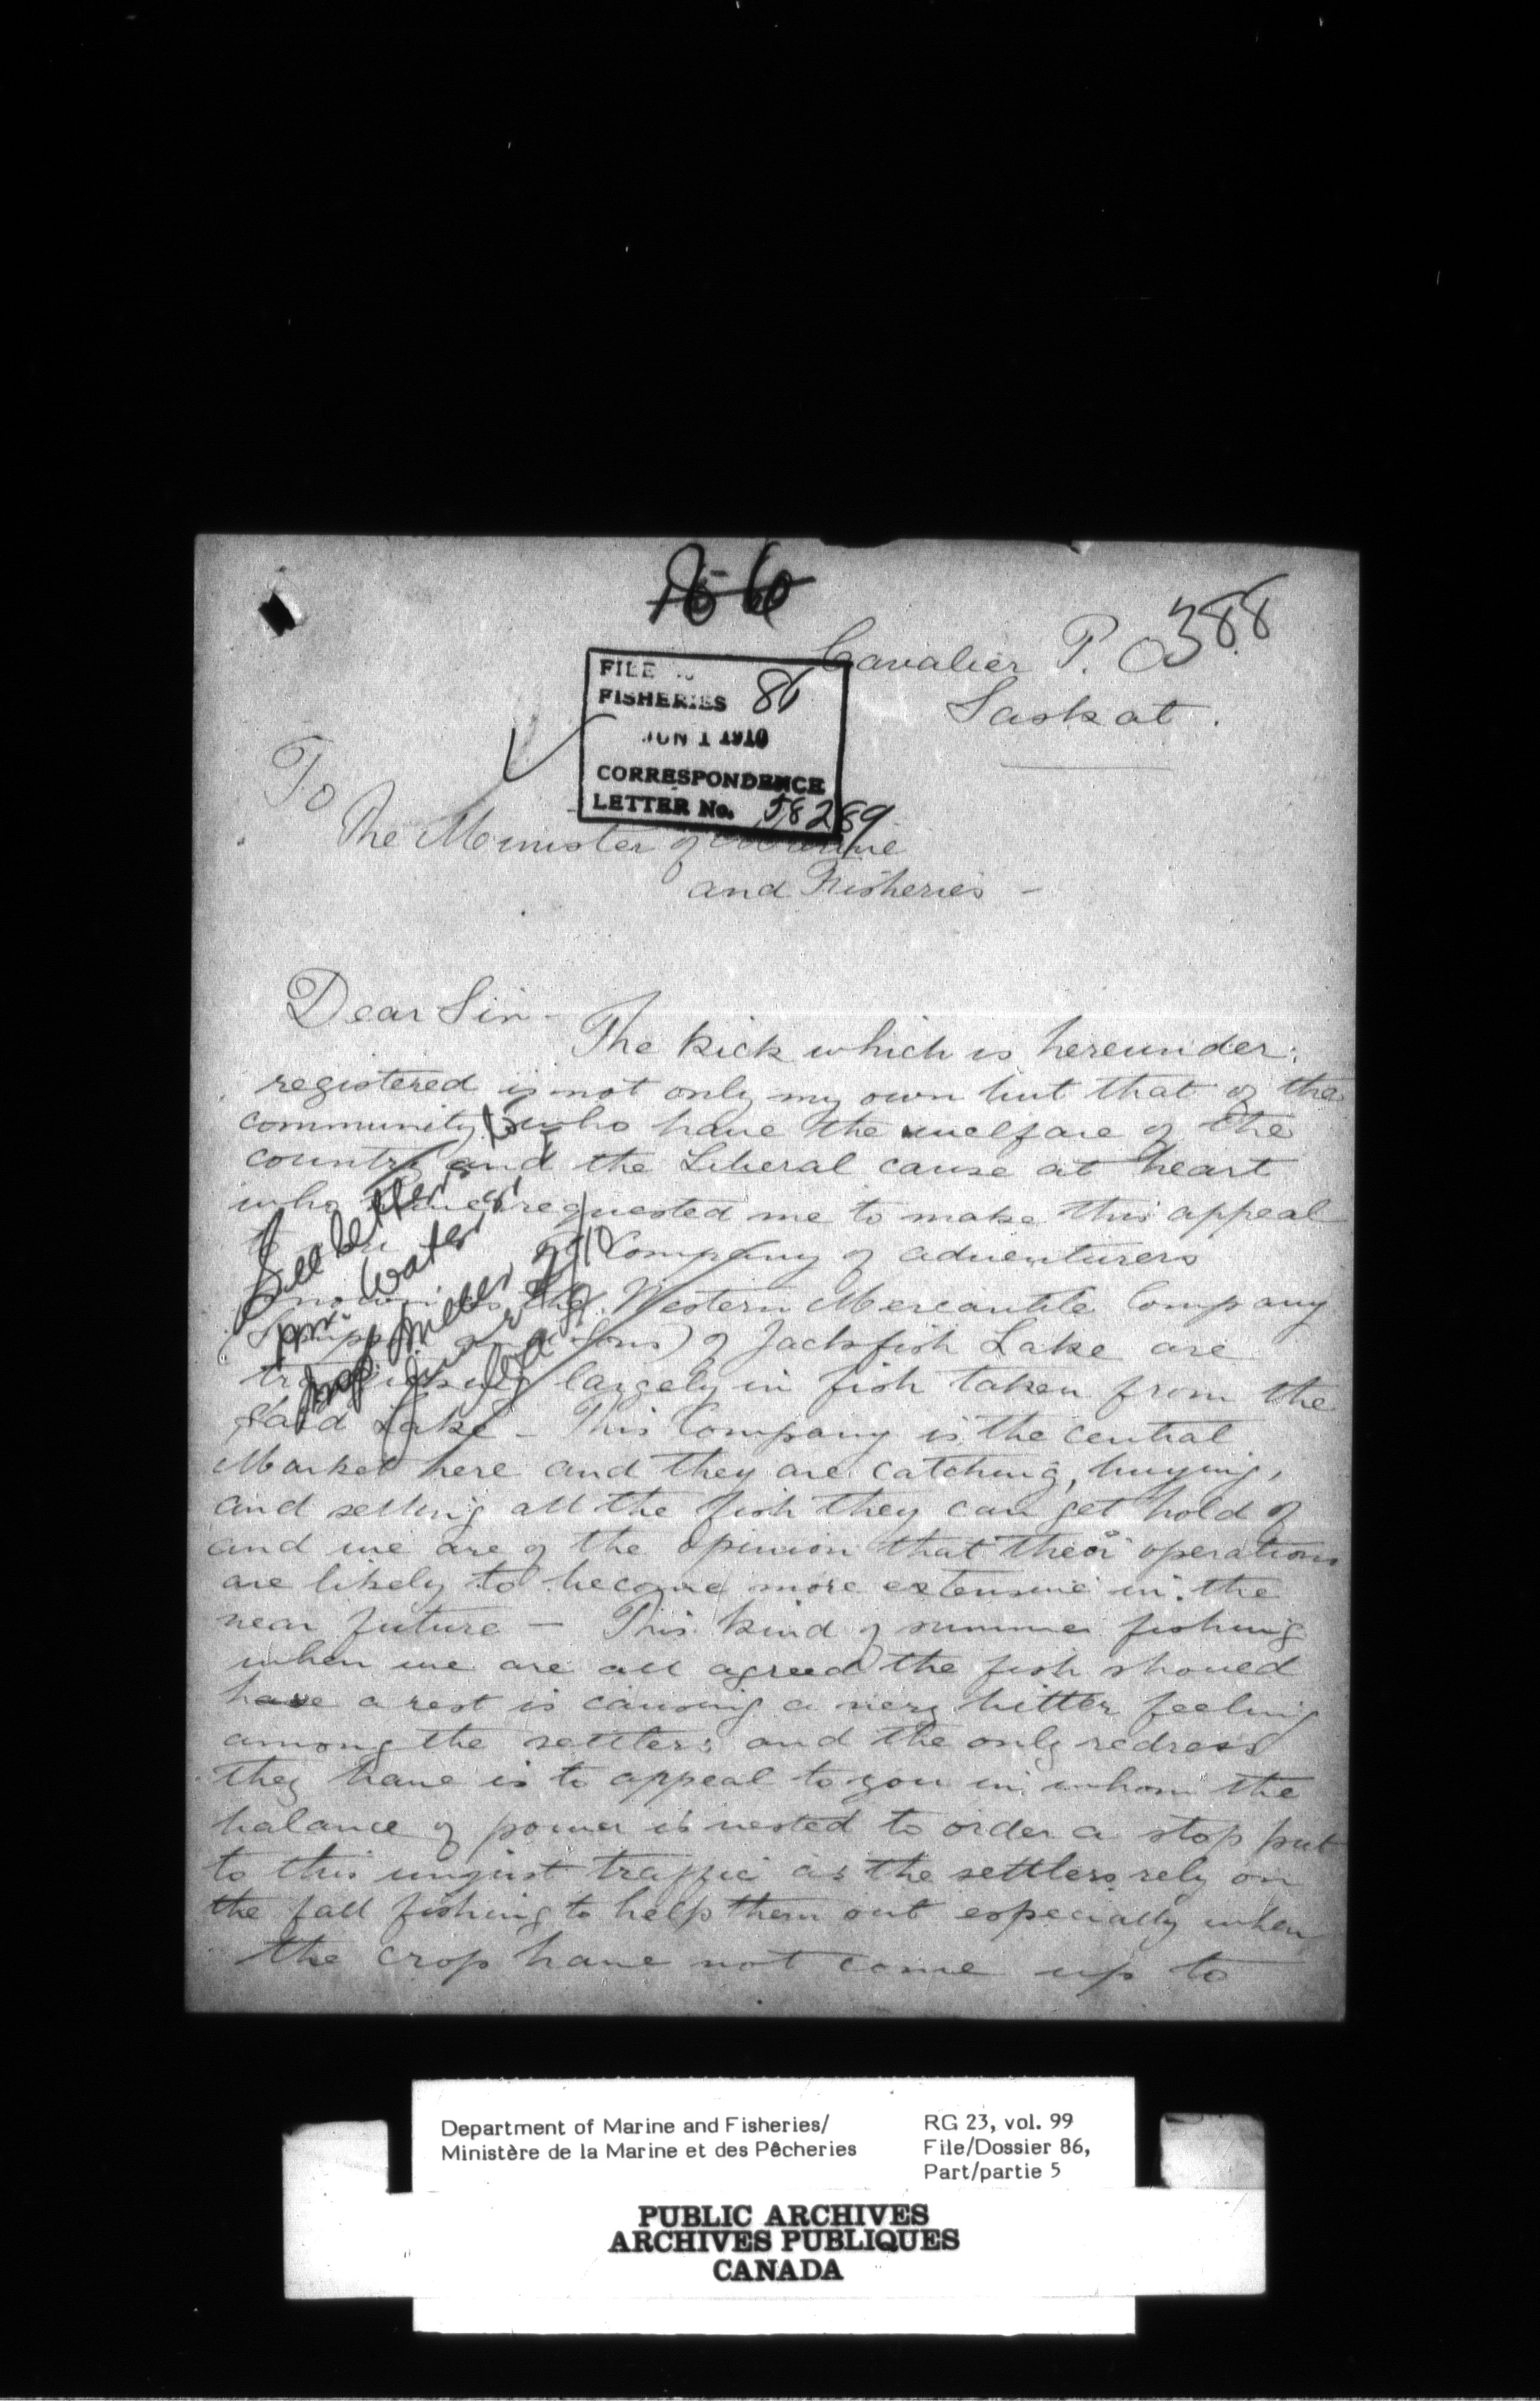 386
388
Cavalier P. O
Saskat.
FILE
FISHERIES 86
JUN 1 1910
CORRESPONDENCE
LETTER No. 58289
To
The Minister of Marine
and Fisheries -
Dear Sir -
The kick which is hereunder
registered is not only my own but that of the
community who have the welfare of the
country and the Liberal cause at heart
who have requested me to make this appeal
to Company of adventurers
known as the Western Mercantile Company
and Sons) of Jackfish Lake are
trafficking largely in fish taken from the
said Lake - This Company is the central
Market here and they are catching, buying,
and selling all the fish they can get hold of
and we are of the opinion that their operations
are likely to become more extensive in the
near future - This kind of summer fishing
when we are all agreed the fish should
have a rest is causing a very bitter feeling
among the settlers and the only redress
they have is to appeal to you in whom the
balance of power is vested to order a stop put
to this unjust traffic as the settlers rely on
the fall fishing to help them out especially when
the crop have not come up to
See letter
Department of Marine and Fisheries/
Ministère de la Marine et des Pêcheries
RG 23, vol. 99
File/Dossier 86,
Part/partie 5
PUBLIC ARCHIVES
ARCHIVES PUBLIQUES
CANADA